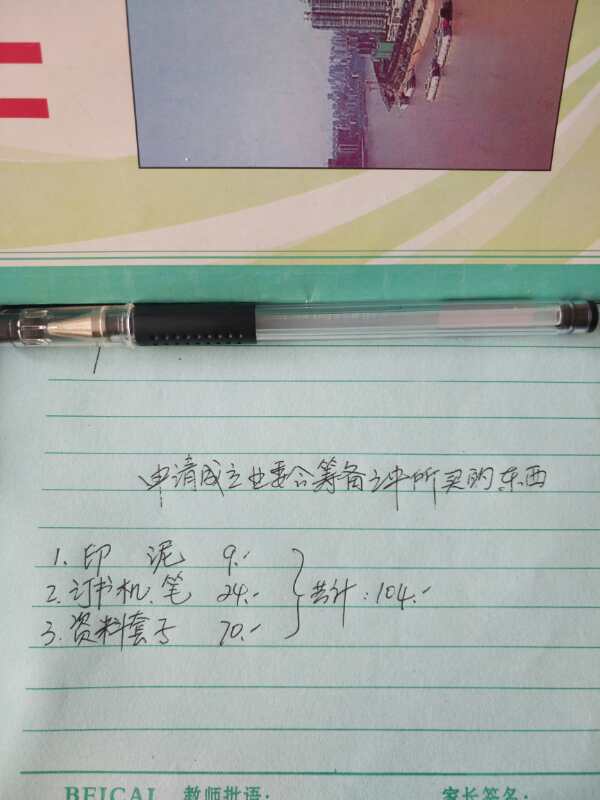 申请成立业委会筹备之中所买的东西
1. 印 泥 9.-
2. 订书机、笔 24.-
3. 资料套子 70.-
共计:104.-
BEICAI 教师批语: 家长签名: